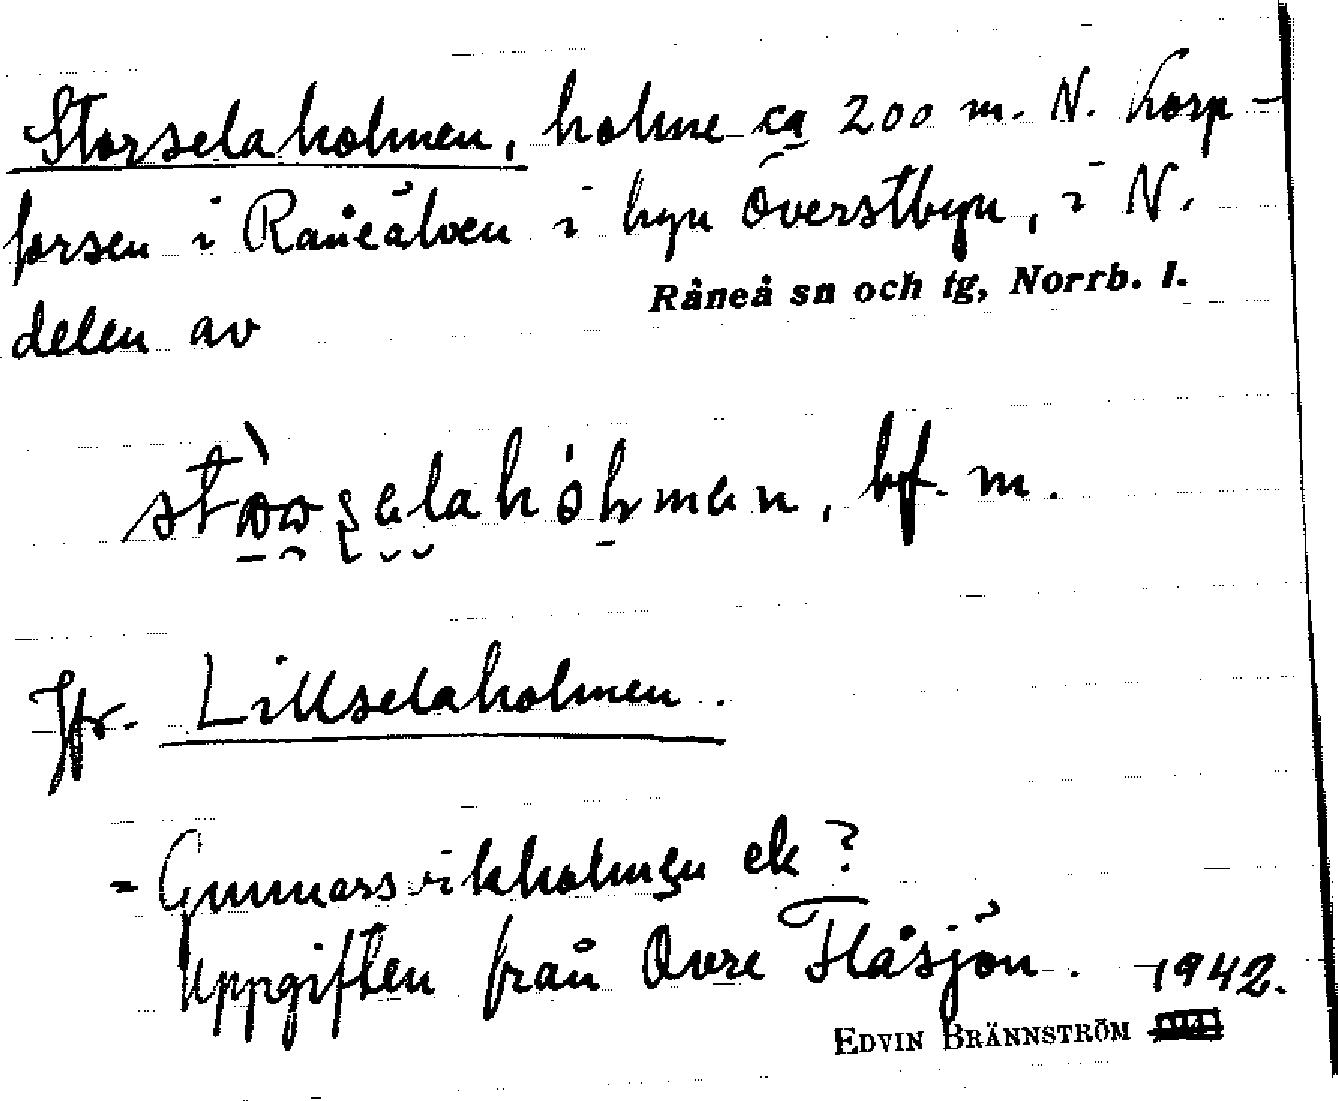 Storselaholmen, holme ca 200 m. N. Korp-
forsen i Råneälven i byn Överstbyn, i N.
Råneå sn och tg, Norrb. l.
delen av
bf. m.
Jfr. Lillselaholmen.
= Gunnarsvikholmen ek?
Uppgiften från Övre Flåsjön. 1942.
EDVIN BRÄNNSTRÖM